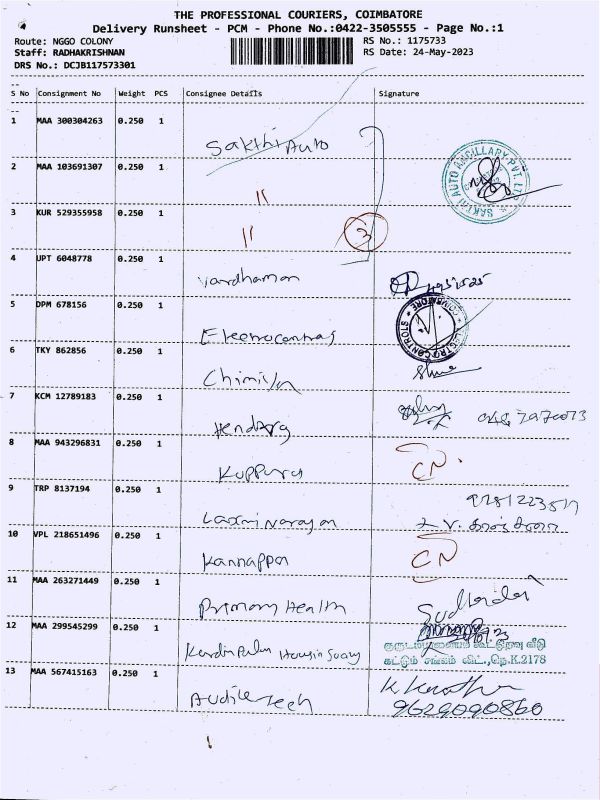 THE PROFESSIONAL COURIERS, COIMBATORE
Delivery Runsheet - PCM - Phone No.:0422-3505555 - Page No.:1
Route: NGGO COLONY
RS No.: 1175733
Staff: RADHAKRISHNAN
RS Date: 24-May-2023
DRS No.: DCJB117573301
S No Consignment No Weight PCS Consignee Details Signature
1 MAA 300304263 0.250 1 Sakthi Auto
2 MAA 103691307 0.250 1 "
SAKTHI AUTO ANCILLARY PVT. LTD
3 KUR 529355958 0.250 1 "
3
4 UPT 6048778 0.250 1 Vardhaman
5 DPM 678156 0.250 1 Electrocontrols
6 TKY 862856 0.250 1
7 KCM 12789183 0.250 1
8 MAA 943296831 0.250 1 CN
9 TRP 8137194 0.250 1 Laxmi Narayan
10 VPL 218651496 0.250 1 Kannappa CN
11 MAA 263271449 0.250 1 Primary Health
12 MAA 299545299 0.250 1
கட்டும் சங்கம் லிட்., நெ.K.2178
13 MAA 567415163 0.250 1
9629090860